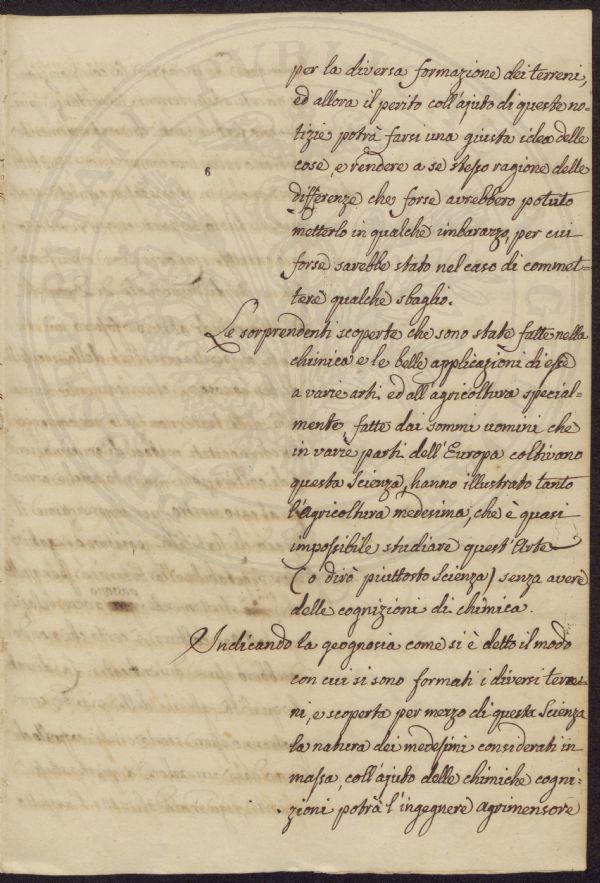 per la diversa formazione dei terreni,
ed allora il perito coll'ajuto di queste no-
tizie potrà farsi una giusta idea delle
6
cose, e rendere a se stesso ragione delle
differenze che forse avrebbero potuto
metterlo in qualche imbarazzo, per cui
forse sarebbe stato nel caso di commet-
tere qualche sbaglio.
Le sorprendenti scoperte che sono state fatte nella
chimica e le belle applicazioni di esse
a varie arti ed all'agricoltura special-
mente, fatte dai sommi uomini che
in varie parti dell'Europa coltivano
questa Scienza, hanno illustrato tanto
l'agricoltura medesima, che è quasi
impossibile studiare quest'Arte
(o dirò piuttosto Scienza) senza avere
delle cognizioni di chimica.
Indicando la geognosia come si è detto il modo
con cui si sono formati i diversi terre-
ni, e scoperta per mezzo di questa Scienza
la natura dei medesimi considerati in
massa, coll'ajuto delle chimiche cogni-
zioni potrà l'ingegnere agrimensore